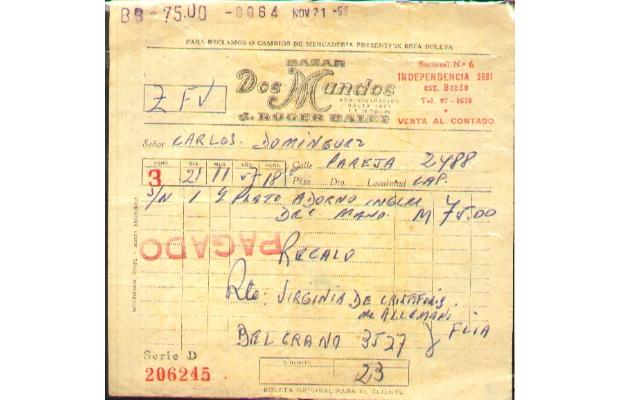 BB - 75.00 - 0064 NOV 21 - 57
PARA RECLAMOS O CAMBIOS DE MERCADERIA PRESENTESE ESTA BOLETA
BAZAR
Dos Mundos
ADMINISTRACION
J. ROGER BALET
Sucursal N.º 6
INDEPENDENCIA 3601
esq. Boedo
Tel. 97 - 3619
VENTA AL CONTADO
Z F
Señor CARLOS. DOMINGUEZ
VEND. DIA MES AÑO HORA
3 21 11 57 18
Calle PAREJA 2488
Piso Dto. Localidad CAP.
S/N 1 PLATO ADORNO INGLES
DEC MANO M 75.00
PAGADO
REGALO
Rte. VIRGINIA DE
de ALLEMANI
BELGRANO 3527 y FLIA
Serie D
206245
23
BOLETA ORIGINAL PARA EL CLIENTE